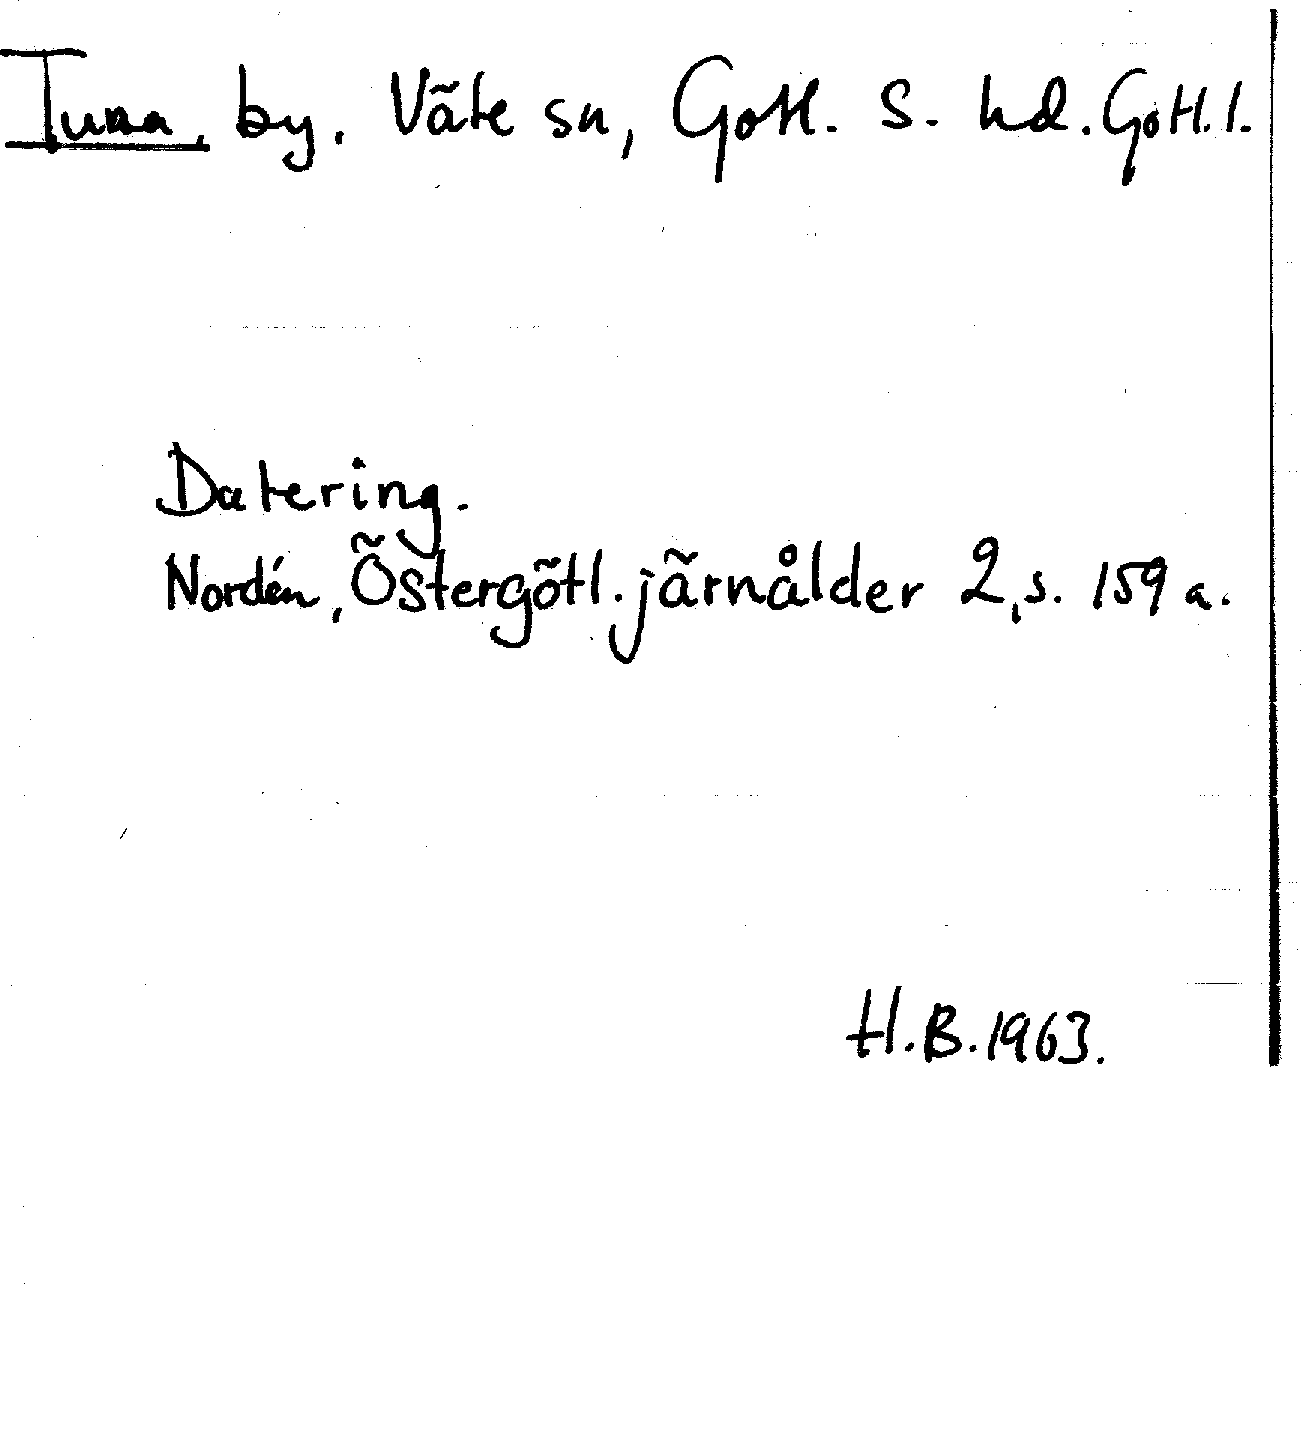 Tuna, by. Väte sn, Gotl. S. hd. Gotl. l.
Datering.
Nordén, Östergötl. järnålder 2, s. 159 a.
H.B. 1963.